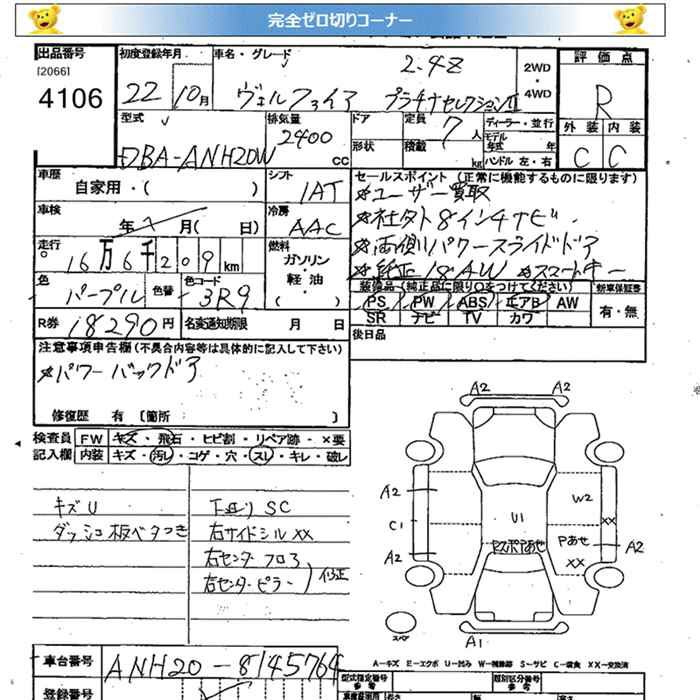 完全ゼロ切りコーナー
出品番号 初度登録年月 車名・グレード 評価点
[2066] 2.4Z 2WD・4WD
4106 22 10月 ヴェルファイア プラチナセレクションⅡ R
型式 排気量 ドア 定員 7人 ディーラー・並行 外装 内装
DBA-ANH20W 2400cc 形状 積載 kg モデル年式 年 ハンドル 左・右 C C
車歴 シフト セールスポイント (正常に機能するものに限ります)
自家用・( ) IAT *ユーザー買取
車検 冷房 *社外8インチナビ
年 月( 日) AAC *両側パワースライドドア
走行 燃料 *純正18AW *スマートキー
16万6千209km ガソリン・軽油・( )
色 色替 色コード 装備品 (純正品に限り○をつけてください) 新車保証書
パープル 3R9 PS PW ABS エアB AW 有・無
SR ナビ TV カワ
R券 18290円 名変通知期限 月 日 後日品
注意事項申告欄 (不具合内容等は具体的に記入して下さい)
*パワーバックドア
修復歴 有 [箇所 ]
検査員 FW キズ・飛石・ヒビ割・リペア跡・×要
記入欄 内装 キズ・汚レ・コゲ・穴・スレ・キレ・破レ
キズU 下回りSC
ダッシュ板ベタつき 右サイドシルXX
右センターフロア
右センターピラー 修正
A2 A2
A2 W2
C1 U1 XX
A2 Pあせ A2
XX
スペア A1
A－キズ E－エクボ U－凹み W－補修跡 S－サビ C－腐食 XX－交換済
車台番号 ANH20-8145764 型式指定番号 類別区分番号
登録番号